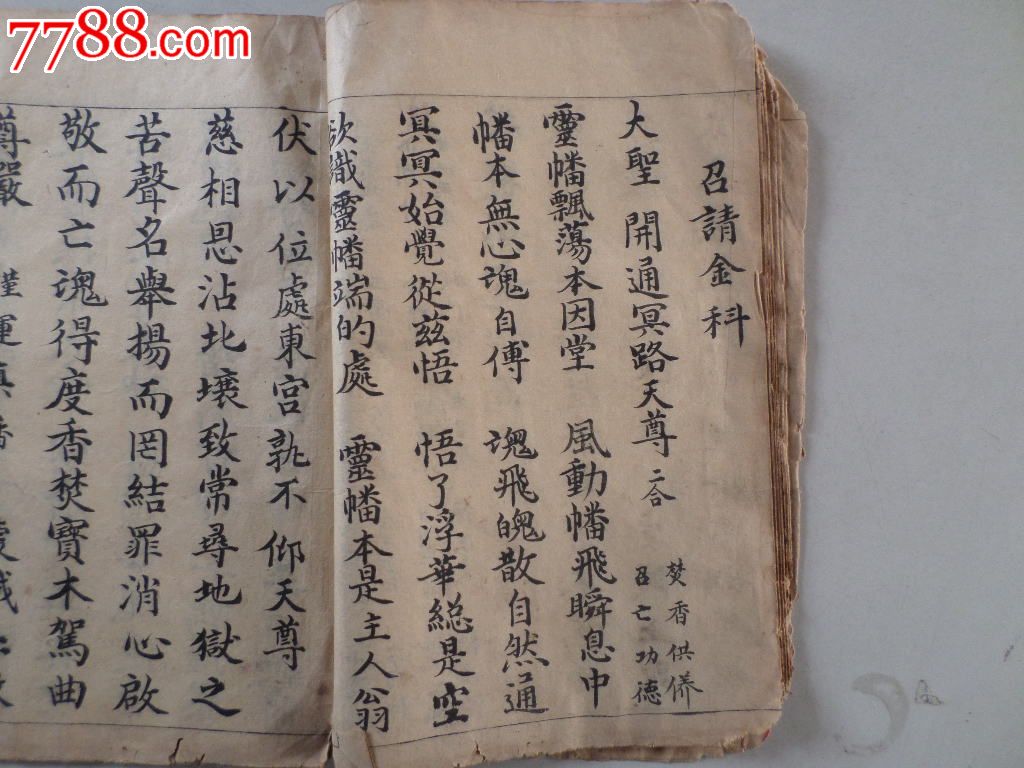 7788.com
召請金科
大聖 開通冥路天尊 二合 焚香供養
召亡功德
靈幡飄蕩本因堂 風動幡飛瞬息中
幡本無心魂自傅 魂飛魄散自然通
冥冥始覺從茲悟 悟了浮華総是空
欲識靈幡端的處 靈幡本是主人翁
伏以位處東宮孰不仰天尊
慈相恩沾北壤致常尋地獄之
苦聲名舉揚而罔結罪消心啟
敬而亡魂得度香焚寶木駕曲